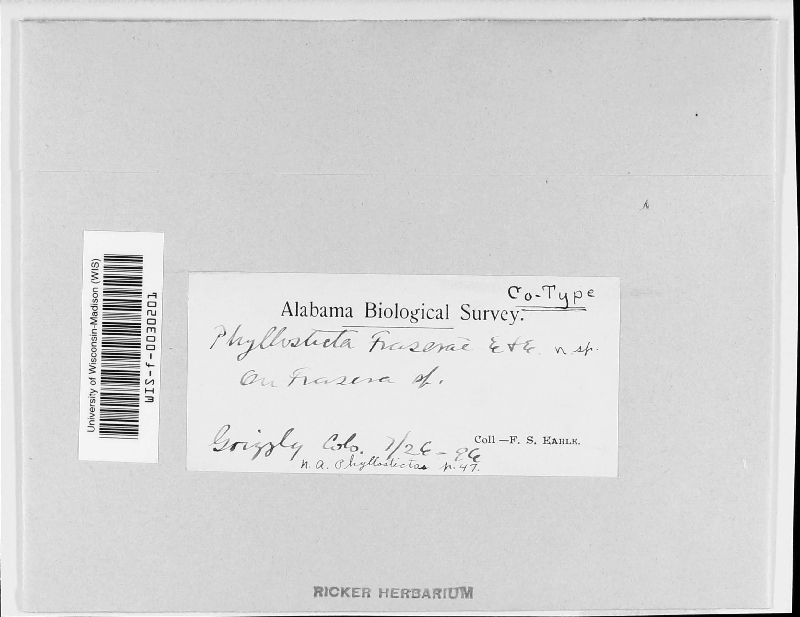 University of Wisconsin-Madison (WIS)
WIS-f-0030201
Co-Type
Alabama Biological Survey.
Phyllosticta Fraserae E & E. n sp.
On Frasera sp.
Grizzly Colo. 7/26-96
Coll—F. S. EARLE.
N. A. Phyllostictas p. 47.
RICKER HERBARIUM